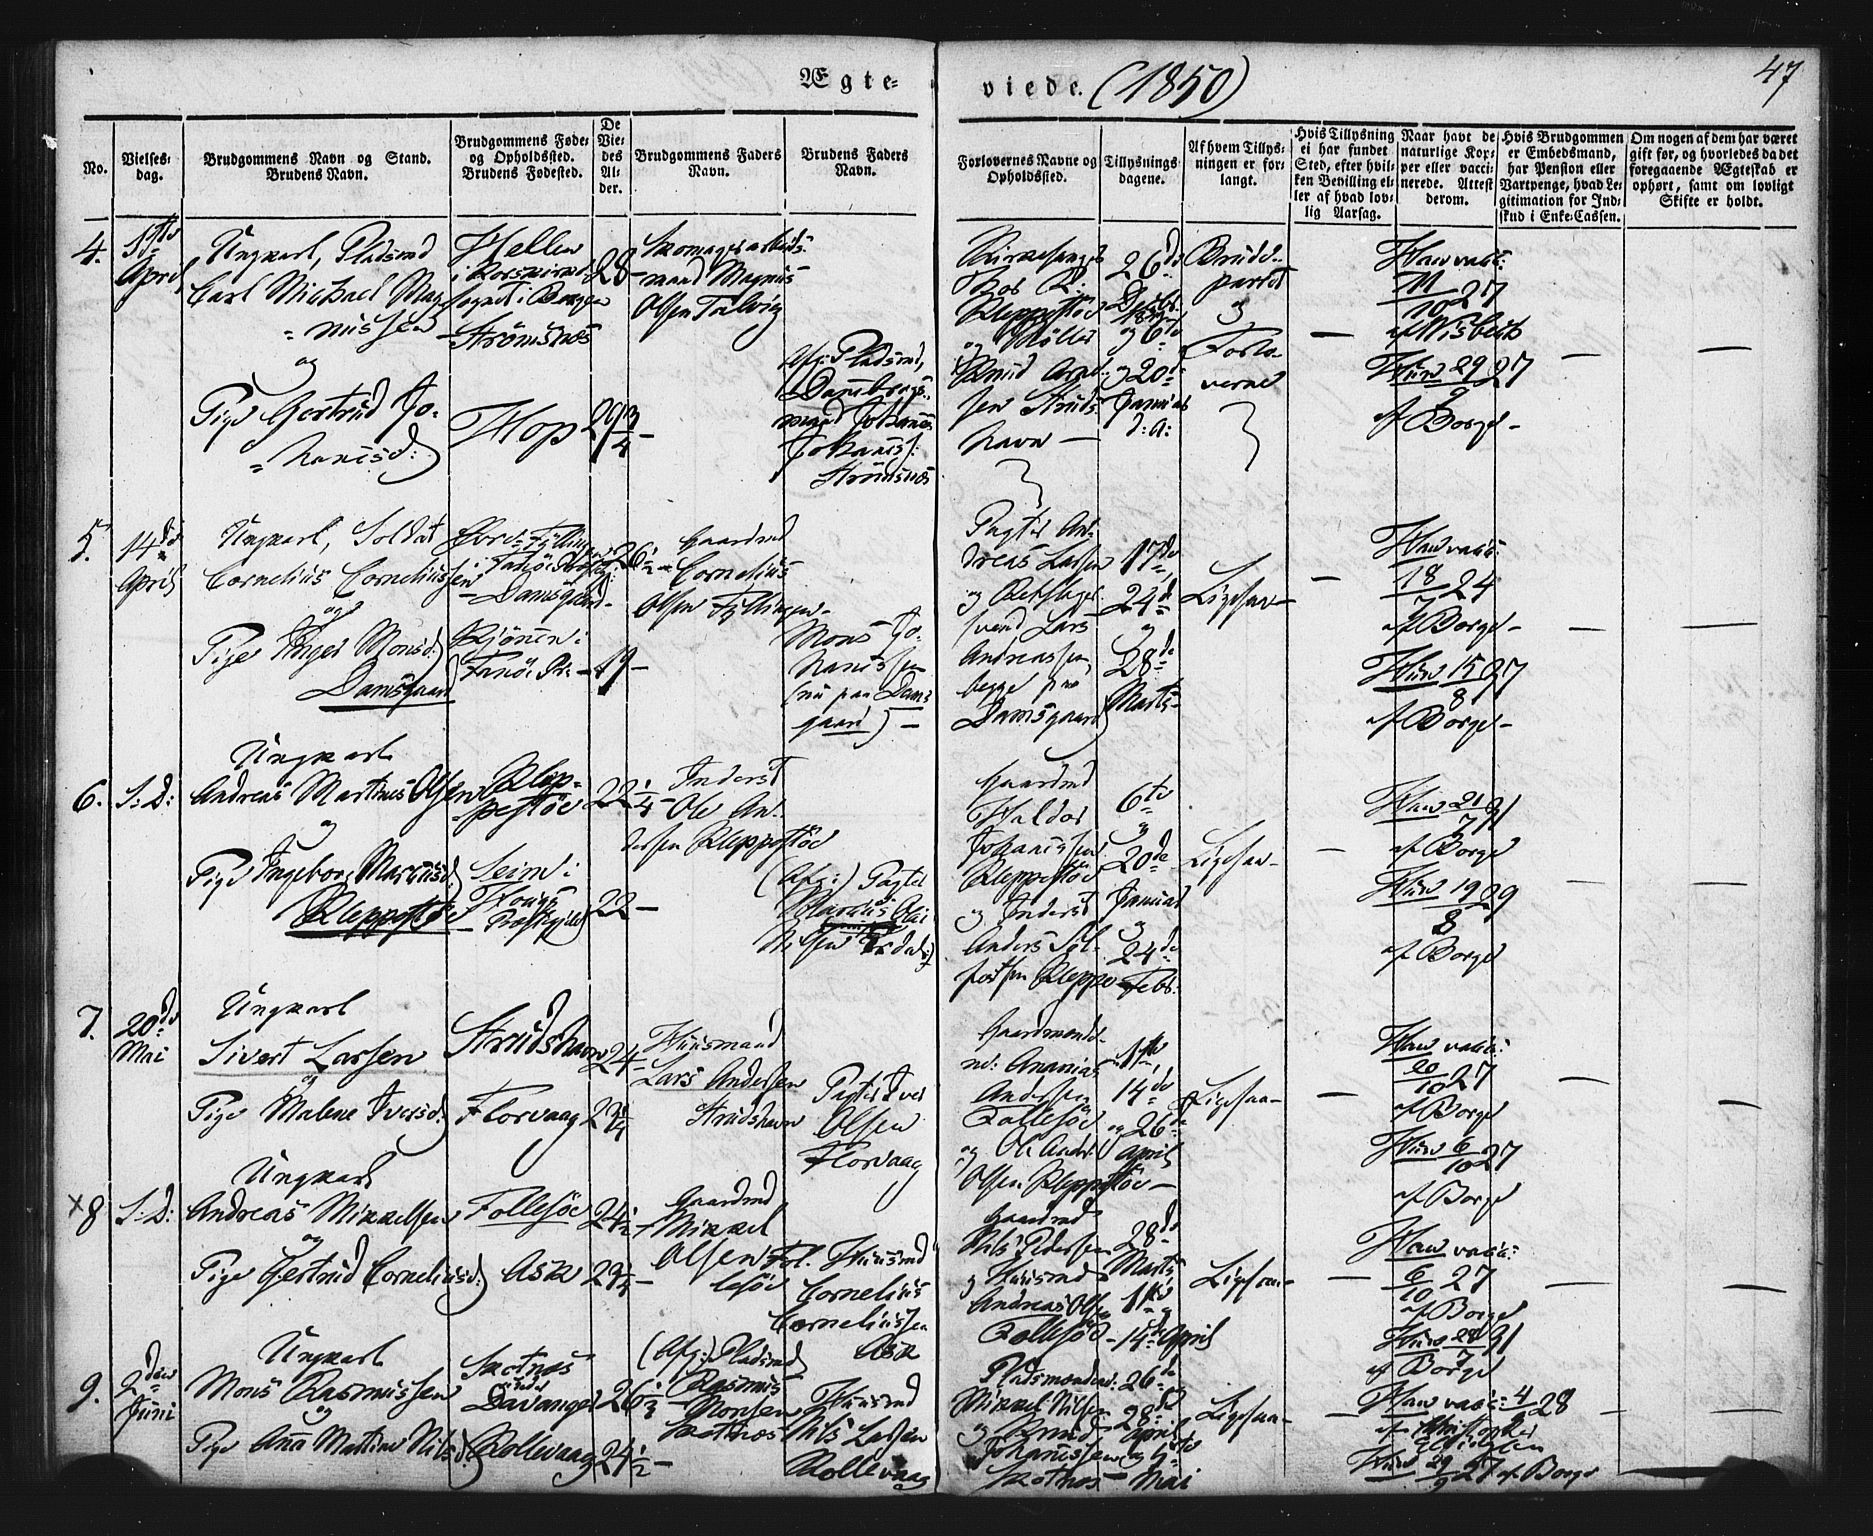 Ægte- viede. (1850)
47
No.
Vielses-
dag.
Brudgommens Navn og Stand.
Brudens Navn.
Brudgommens Føde-
og Opholdssted.
Brudens Fødested.
De
Vie-
des
Al-
der.
Brudgommens Faders
Navn.
Brudens Faders
Navn.
Forlovernes Navne og
Opholdssted.
Tillysnings-
dagene.
Af hvem Tillys-
ningen er for-
langt.
Hvis Tillysning
ei har fundet
Sted, efter hvil-
ken Bevilling el-
ler af hvad lov-
lig Aarsag.
Naar havt de
naturlige Kop-
per eller vacci-
nerede. Attest
derom.
Hvis Brudgommen
er Embedsmand,
har Pension eller
Vartpenge, hvad Le-
gitimation for Ind-
skud i Enke-Cassen.
Om nogen af dem har været
gift før, og hvorledes da det
foregaaende Ægteskab er
ophørt, samt om lovligt
Skifte er holdt.
4.
1ste
April
Ungkarl, Pladsmd
Carl Michael Mag-
nussen
og
Pige Gertrud Jo-
hanisd:
Hellen
i Korskirkes
sognet i Bergen
Strømsnæs
Hop
28-
29 3/4 -
mand Magnus
Olsen Talvig
Afg: Pladsmd,
Dannebrogs-
mand Johannes
Johanis:
Strømsnæs
Kirkesanger
Kleppestöe
og Möller
Knud Arnt-
sen Struds-
havn -
26de
Decbr
og 6te
og 20de
Januar
d: A:
Brude-
parret
og
Forlo-
verne
Ham vacc:
11/10 27
af Nisbeth
Hun 29/9 27
af Borge-
5.
14de
April
Ungkarl, Soldat
Cornelius Corneliussen
og
Pige Inger Monsd:
Damsgaard
Damsgaard-
Kjönen i
Fanöe Pr: -
26 1/2 -
19-
Gaardmd
Cornelius
Olsen Fyllingen-
Mons Jo-
hanissen
(nu paa Dams-
gaard) -
Pagter An-
dreas Larsen
og
svend Lars
Andreassen,
begge paa
Damsgaard
17de,
24de
og
28de
Marts-
Ligesaa-
Ham vacc:
18/7 24
af Borge-
Hun 15/8 27
af Borge-
6.
S: D:
Ungkarl
Andreas Martinus Olsen
og
Pige Ingeborg Marcusd:
Kleppestöe
Klep-
pestöe
Seim i
Hougs
Præstegjeld
22 1/4 -
22 -
Inderst
Ole An-
dersen Kleppestöe
(Afg:) Pagter
Marcus Olai
Nilsen
Gaardmd
Haldor
Johannissen
Kleppestöe
og Inderst
Anders Sjl-
festsen Kleppe-
6te
og
20de
Januar
og
24de
Febr:
Ligesaa-
Ham 21/7 31
af Borge
Hun 19/8 29
af Borge
7.
20de
Mai
Ungkarl
Sivert Larsen
og
Pige Malene Iversd:
Strudshavn
Florvaag
24-
23 1/4
Huusmand
Lars Andersen
Strudshavn
Pagter Iver
Olsen
Florvaag
Gaardmænde-
ne: Ananias
Andersen
Follesöe
og Ole Ander:
Olsen Kleppestöe-
1ste,
14de
og 26de
April
Ligesaa-
Ham vacc:
20/10 27
af Borge
Hun 6/10 27
af Borge
x8
S: D:
Ungkarl
Andreas Mikkelsen
og
Pige Gertrud Corneliusd:
Follesöe
Ask
24 1/2 -
23 1/4 -
Gaardmd
Mikkel
Olsen Fol-
lesöe
Huusmd
Cornelius
Corneliussen
Ask
Gaardmd
Nils Pedersen
og Huusmd
Andreas Olsen
Follesöe -
28de
Marts
1ste
og
14de April
Ligesaa-
Ham vacc:
6/10 27
af Borge
Hun 28/7 31
af Borge
9.
2den
Juni
Ungkarl
Mons Rasmussen
og
Pige Ana Martine Nilsd:
Skotnæs
under
Davanger
Rollevaag
26 1/2
24 1/2 -
(Afg:) Pladsmd
Rasmus
Monsen
Skotnæs
Huusmd
Nils Larsen
Rollevaag
Pladsmændene:
Mikkel Nilsen
og Knud
Johannissen
Skotnæs -
26de
28de
April
og 9de
Mai
Ligesaa-
Ham vacc: 4/8 28
Hun 29/9 27 af Borge